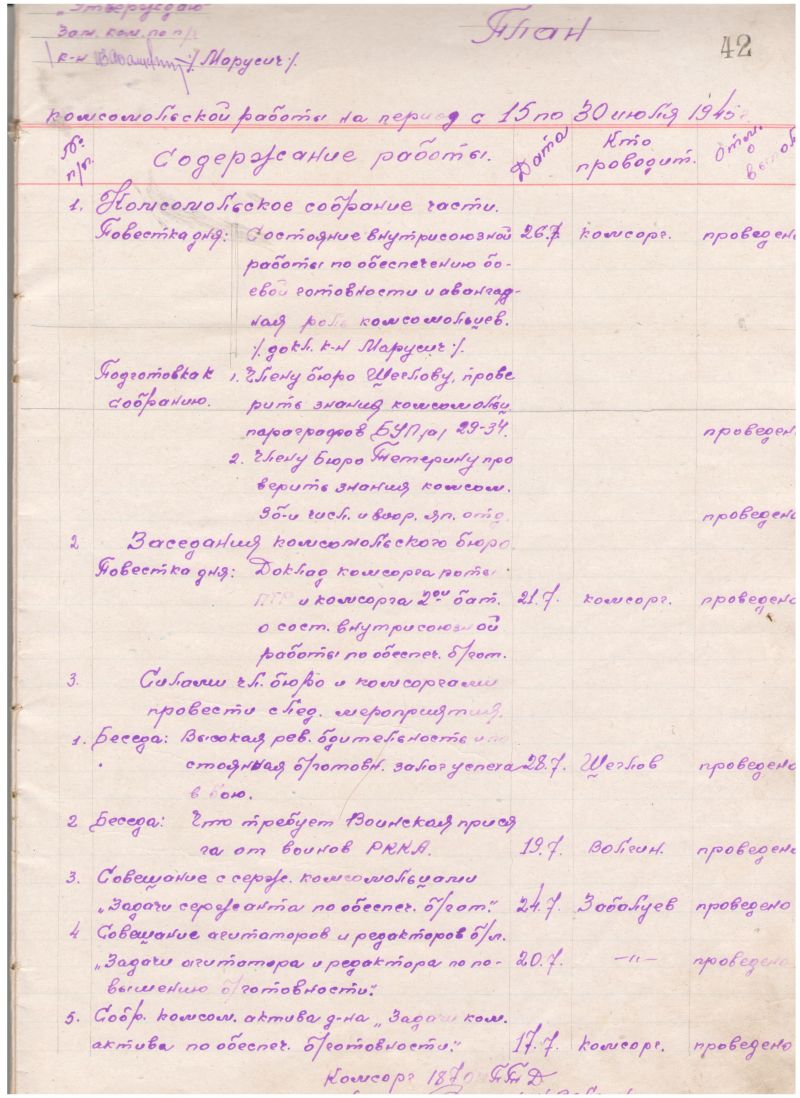 „Утверждаю"
Зам. ком. по п/ч
к-н /Марусич/.
План
42
комсомольской работы на период с 15 по 30 июля 1945 г.
№ п/п. Содержание работы. Дата Кто проводит. Отм. о выпол
1. Комсомольское собрание части.
Повестка дня: Состояние внутрисоюзной 26.7 комсорг. проведено
работы по обеспечению бо-
евой готовности и авангард-
ная роль комсомольцев.
/. докл. к-н Марусич ./.
Подготовка к 1. Члену бюро Щеглову, прове
собранию. рить знания комсомольц
параграфов БУП /а/ 29-34. проведено
2. Члену Бюро Тетерину про
верить знания комсом.
числ. и воор. яп. отд. проведено
2 Заседания комсомольского бюро.
Повестка дня: Доклад комсорга роты
ПТР и комсорга 2ой бат. 21.7. комсорг. проведено
о сост. внутрисоюзной
работы по обеспеч. б/гот.
3. Силами чл. бюро и комсоргами
провести след. мероприятия.
1. Беседа: Высокая рев. бдительность и по
стоянная б/готовн. залог успеха 28.7. Щеглов проведено
в бою.
2 Беседа: Что требует Воинская прися
га от воинов РККА. 19.7. Волгин. проведено
3. Совещание с серж. комсомольцами
„Задачи сержанта по обеспеч. б/гот." 24.7. Забалуев проведено
4 Совещание агитаторов и редакторов б/л.
„Задачи агитатора и редактора по по- 20.7. —"— проведено
вышению б/готовности".
5. Собр. комсом. актива д-на „Задачи ком.
актива по обеспеч. б/готовности." 17.7. комсорг. проведено
Комсорг 187 ПТД